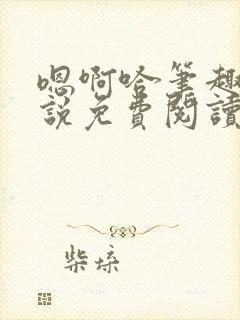 嗯啊哈筆趣
說免費閱讀
柴垛